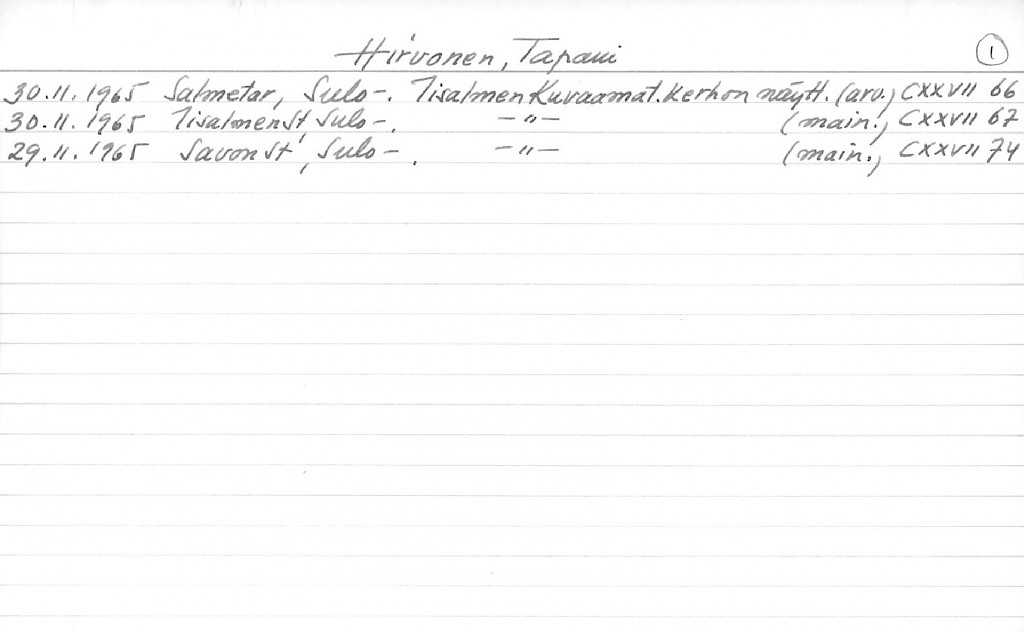 Hirvonen, Tapani
1
30.11.1965 Salmetar, Sulo-. Iisalmen Kuvaamat.kerhon näytt. (arv.) CXXVII 66
30.11.1965 Iisalmen St, Sulo-. -"- (main.) CXXVII 67
29.11.1965 Savon St, Sulo-. -"- (main.) CXXVII 74